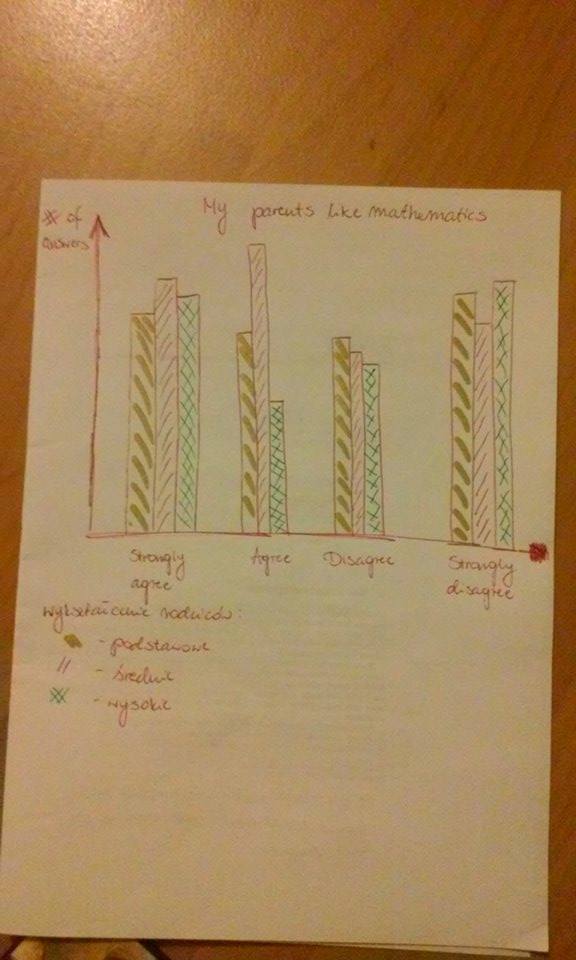 My parents like mathematics
# of
answers
Strongly
agree
Agree
Disagree
Strongly
disagree
wykształcenie rodziców:
- podstawowe
- średnie
- wysokie